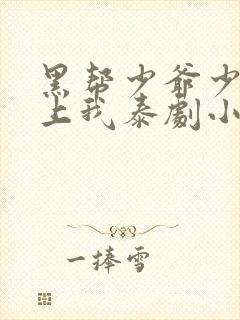 黑帮少爷少
上我泰剧小
一捧雪